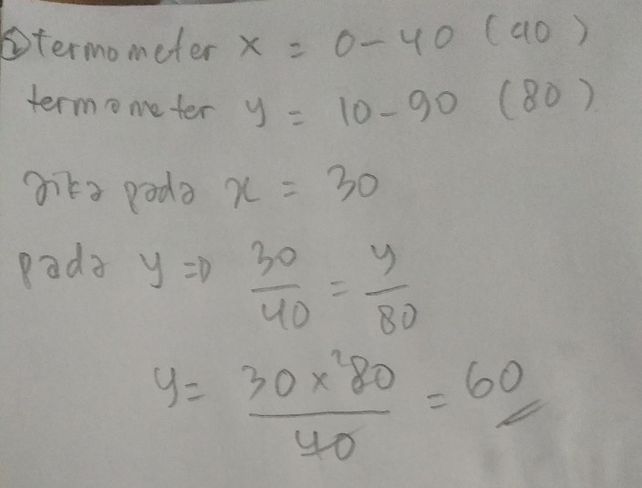 ② termometer x = 0-40 (40)
termometer y = 10-90 (80)
Jika pada x = 30
pada y => 30/40 = y/80
y = 30 x ²80 / 40 = 60